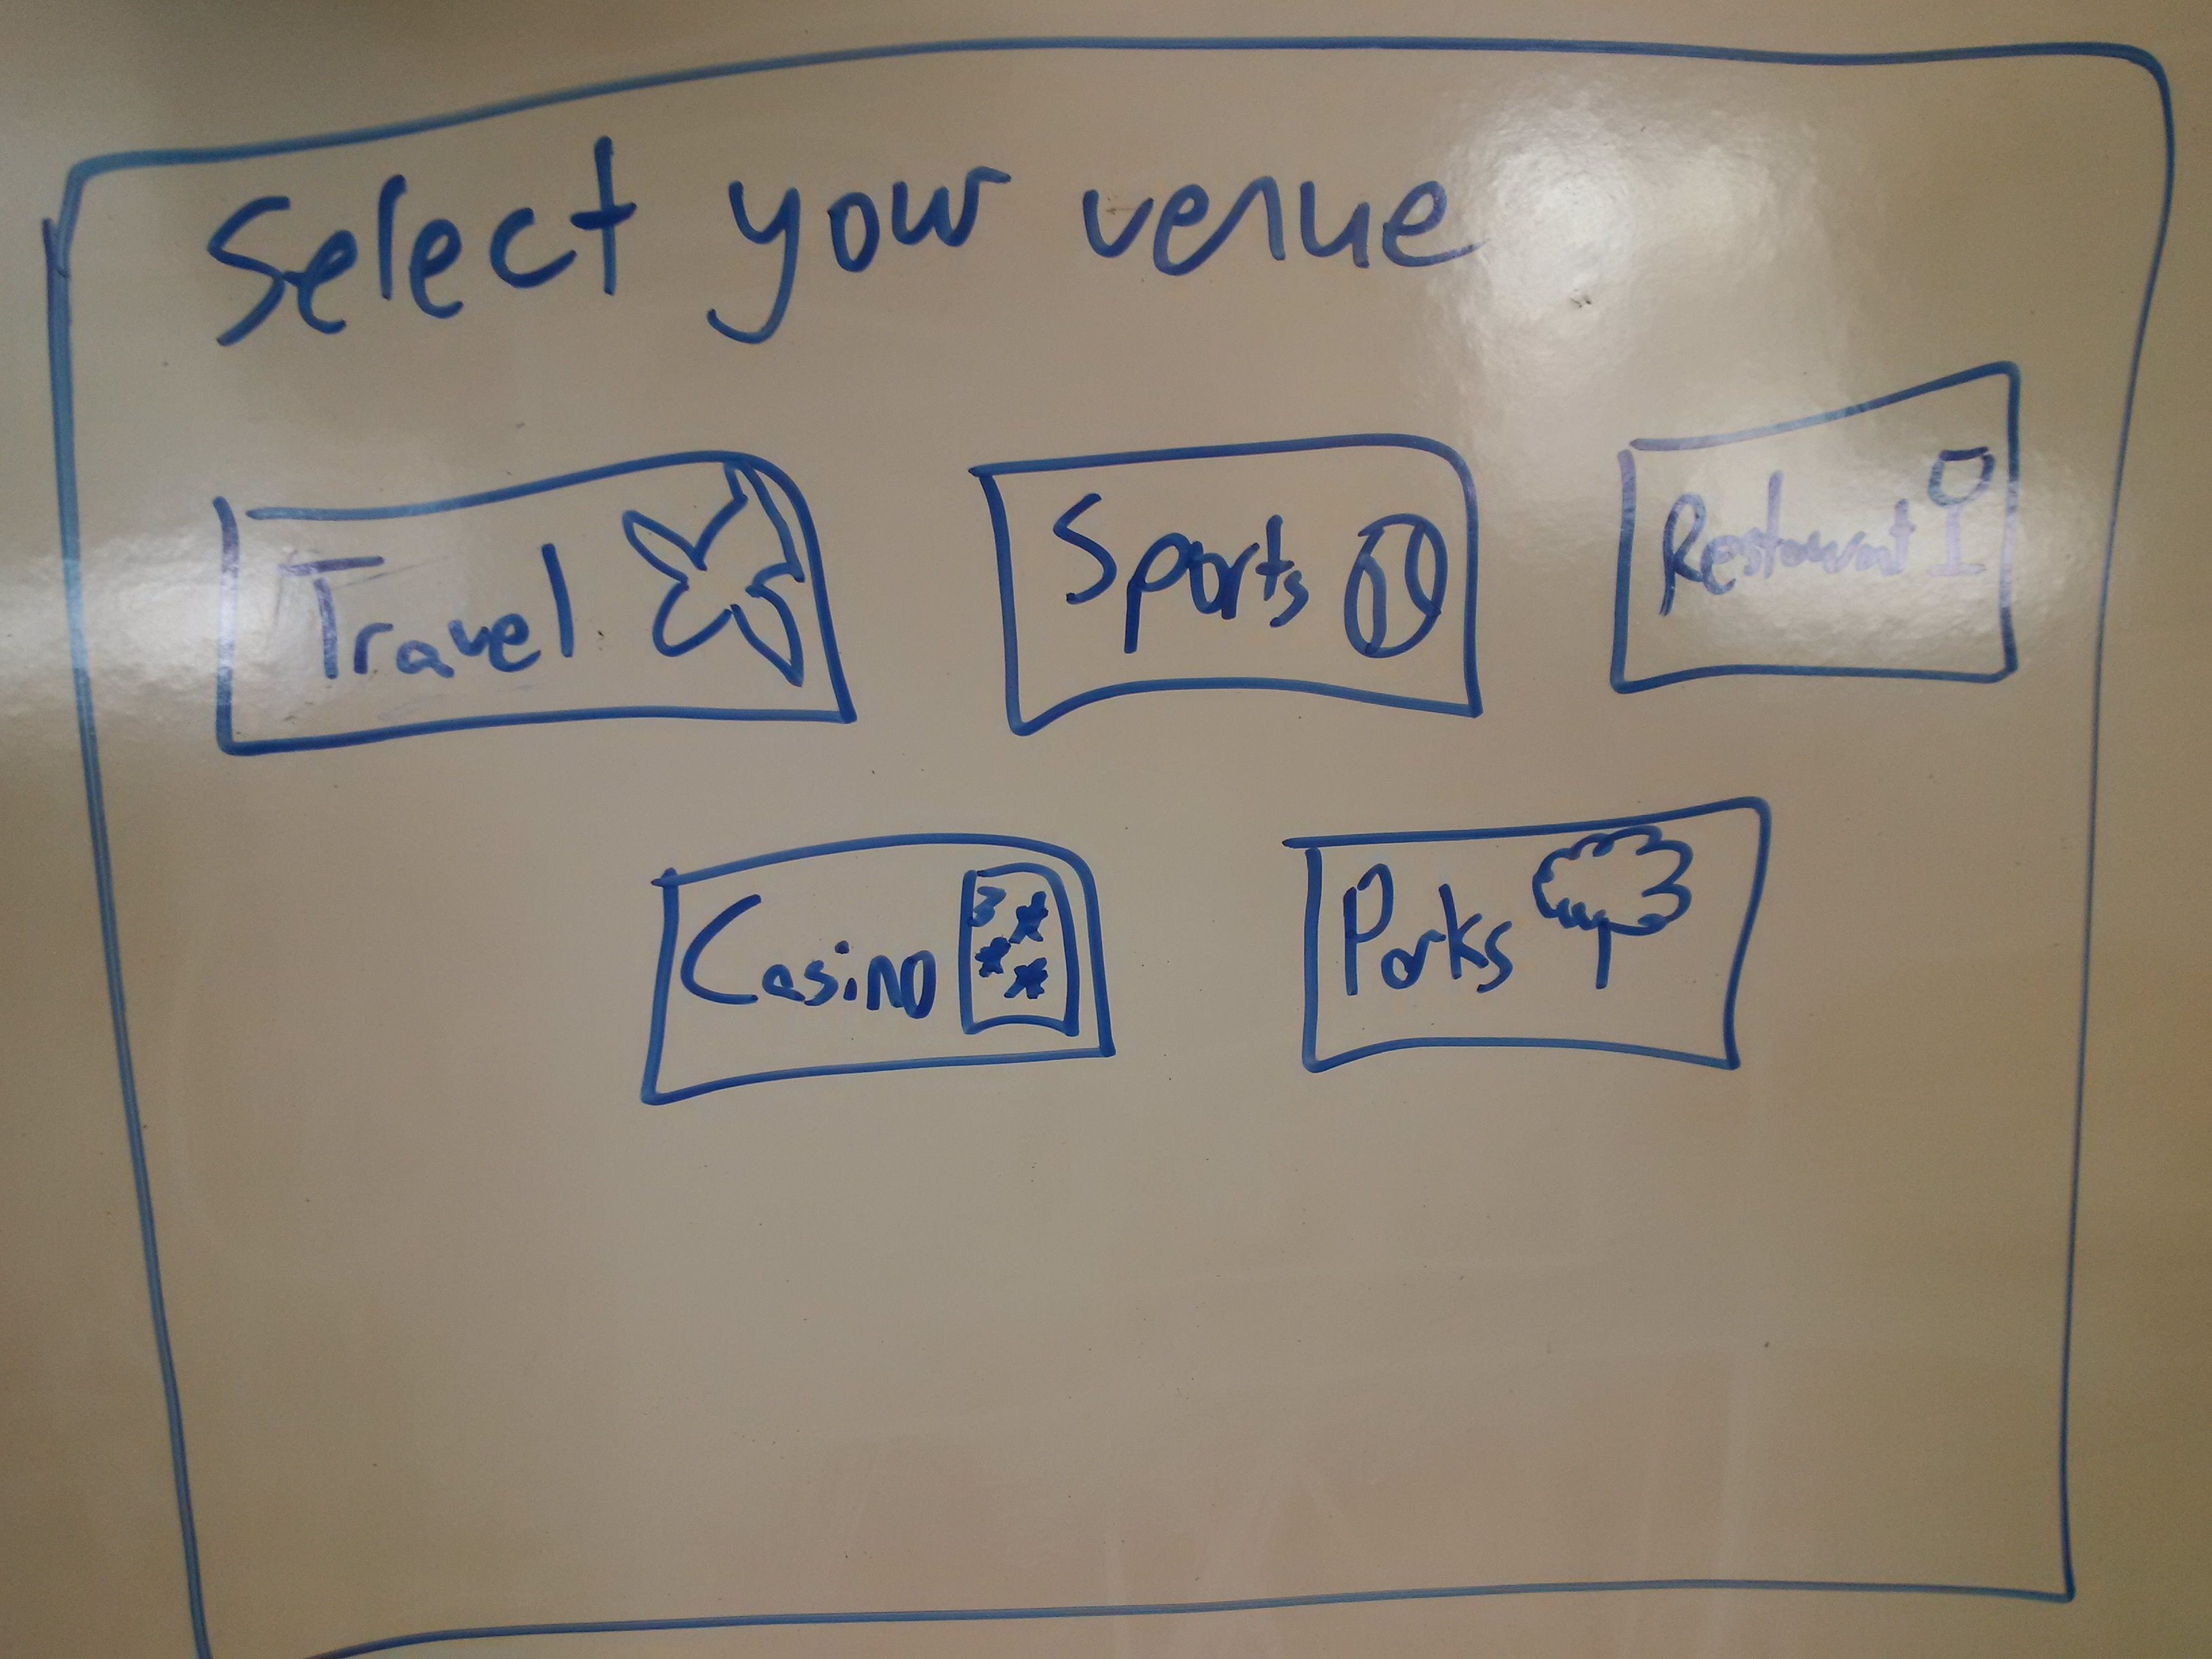 Select your venue
Travel
Sports
Restaurant
Casino
3
Parks